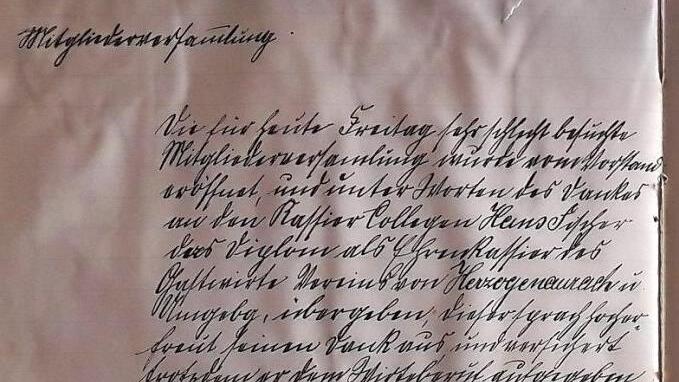 Mitgliederversam̅lung.
Die für heute Freitag sehr schlecht besuchte
Mitgliederversamlung wurde vom Vorstand
eröffnet, und unter Worten des Dankes
an den Kassier Collegen Hans Fischer
das Diplom als Ehrenkassier des
Gastwirte Vereins von Herzogenaurach u
Umgebg, übergeben, dieser sprach hocher-
freut seinen Dank aus, und versichert
trotzdem er dem Wirteberuf aufgegeben